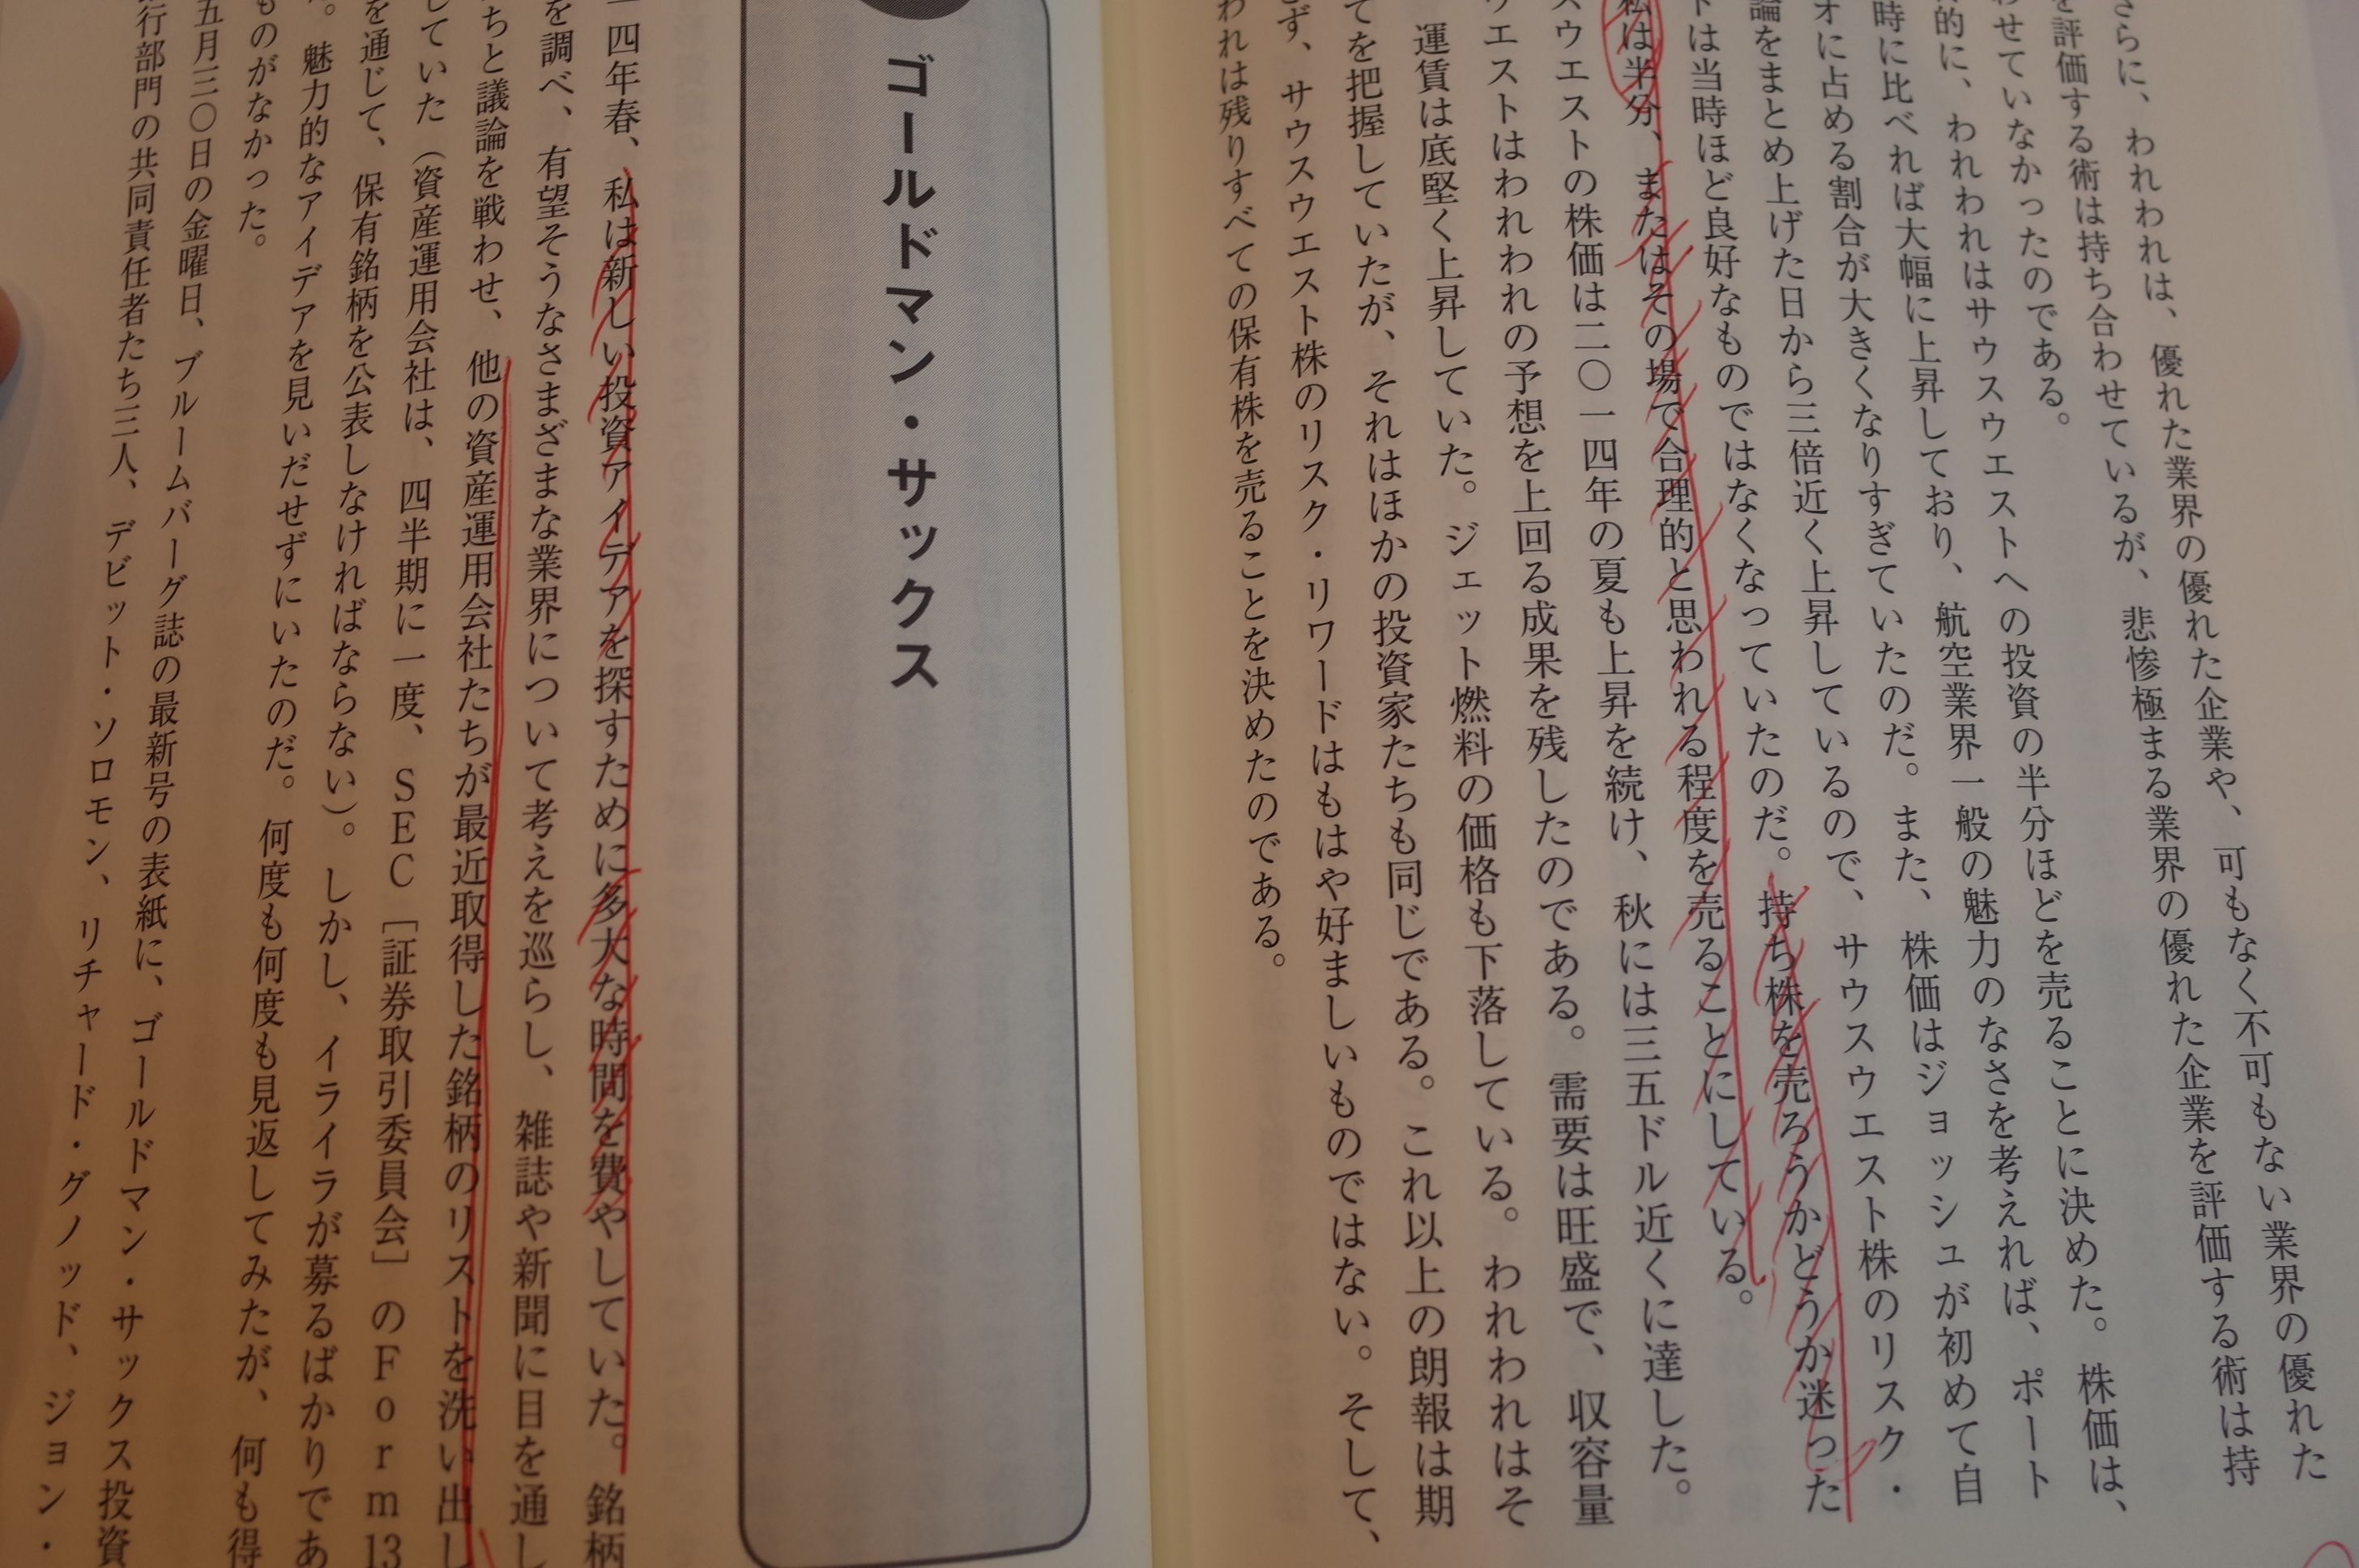 さらに、われわれは、優れた業界の優れた企業や、可もなく不可もない業界の優れた
を評価する術は持ち合わせているが、悲惨極まる業界の優れた企業を評価する術は持
わせていなかったのである。
的に、われわれはサウスウエストへの投資の半分ほどを売ることに決めた。株価は、
時に比べれば大幅に上昇しており、航空業界一般の魅力のなさを考えれば、ポート
オに占める割合が大きくなりすぎていたのだ。また、株価はジョッシュが初めて自
論をまとめ上げた日から三倍近く上昇しているので、サウスウエスト株のリスク・
トは当時ほど良好なものではなくなっていたのだ。持ち株を売ろうかどうか迷った
私は半分、またはその場で合理的と思われる程度を売ることにしている。
スウエストの株価は二〇一四年の夏も上昇を続け、秋には三五ドル近くに達した。
ウエストはわれわれの予想を上回る成果を残したのである。需要は旺盛で、収容量
運賃は底堅く上昇していた。ジェット燃料の価格も下落している。われわれはそ
てを把握していたが、それはほかの投資家たちも同じである。これ以上の朗報は期
ず、サウスウエスト株のリスク・リワードはもはや好ましいものではない。そして、
われは残りすべての保有株を売ることを決めたのである。
ゴールドマン・サックス
一四年春、私は新しい投資アイデアを探すために多大な時間を費やしていた。銘柄
を調べ、有望そうなさまざまな業界について考えを巡らし、雑誌や新聞に目を通し
ちと議論を戦わせ、他の資産運用会社たちが最近取得した銘柄のリストを洗い出し
していた（資産運用会社は、四半期に一度、SEC［証券取引委員会］のForm13
を通じて、保有銘柄を公表しなければならない）。しかし、イライラが募るばかりであ
。魅力的なアイデアを見いだせずにいたのだ。何度も何度も見返してみたが、何も得
ものがなかった。
五月三〇日の金曜日、ブルームバーグ誌の最新号の表紙に、ゴールドマン・サックス投資
行部門の共同責任者たち三人、デビット・ソロモン、リチャード・グノッド、ジョン・